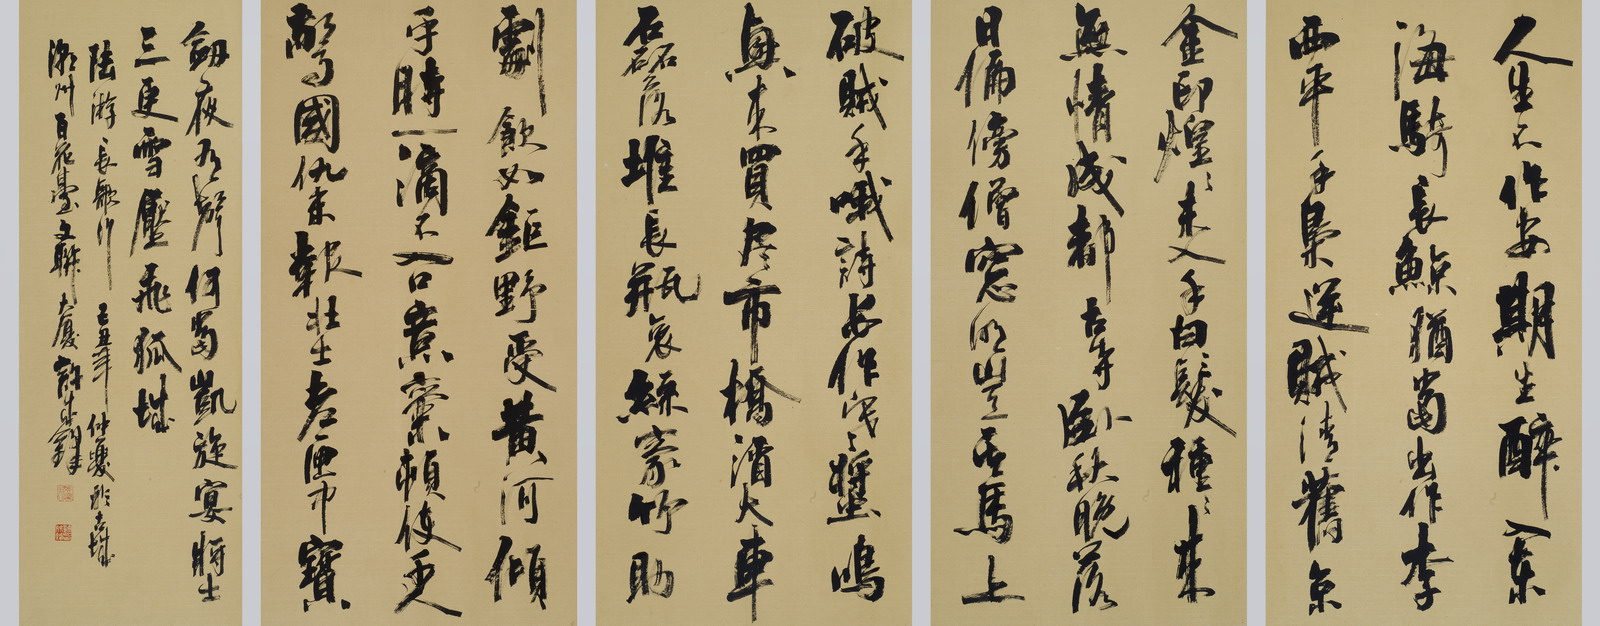 人生不作安期生醉入東
海騎長鯨猶當出作李
西平手梟逆賊清舊京
金印煌〻未入手白髮種〻來
無情成都古寺臥秋晚落
日偏傍僧窓明豈其馬上
破賊手哦詩長作寒螿鳴
興來買尽市橋酒大車
磊落堆長瓶哀絲豪竹助
劇飲如鉅野受黃河傾
平時一滴不入口意氣頓使千人
驚國仇未報壯士老匣中寶
劍夜有聲何當凱旋宴將士
三更雪壓飛狐城
陸游長歌行 己丑年仲夏於古城
潮州百花臺文聯大廈許